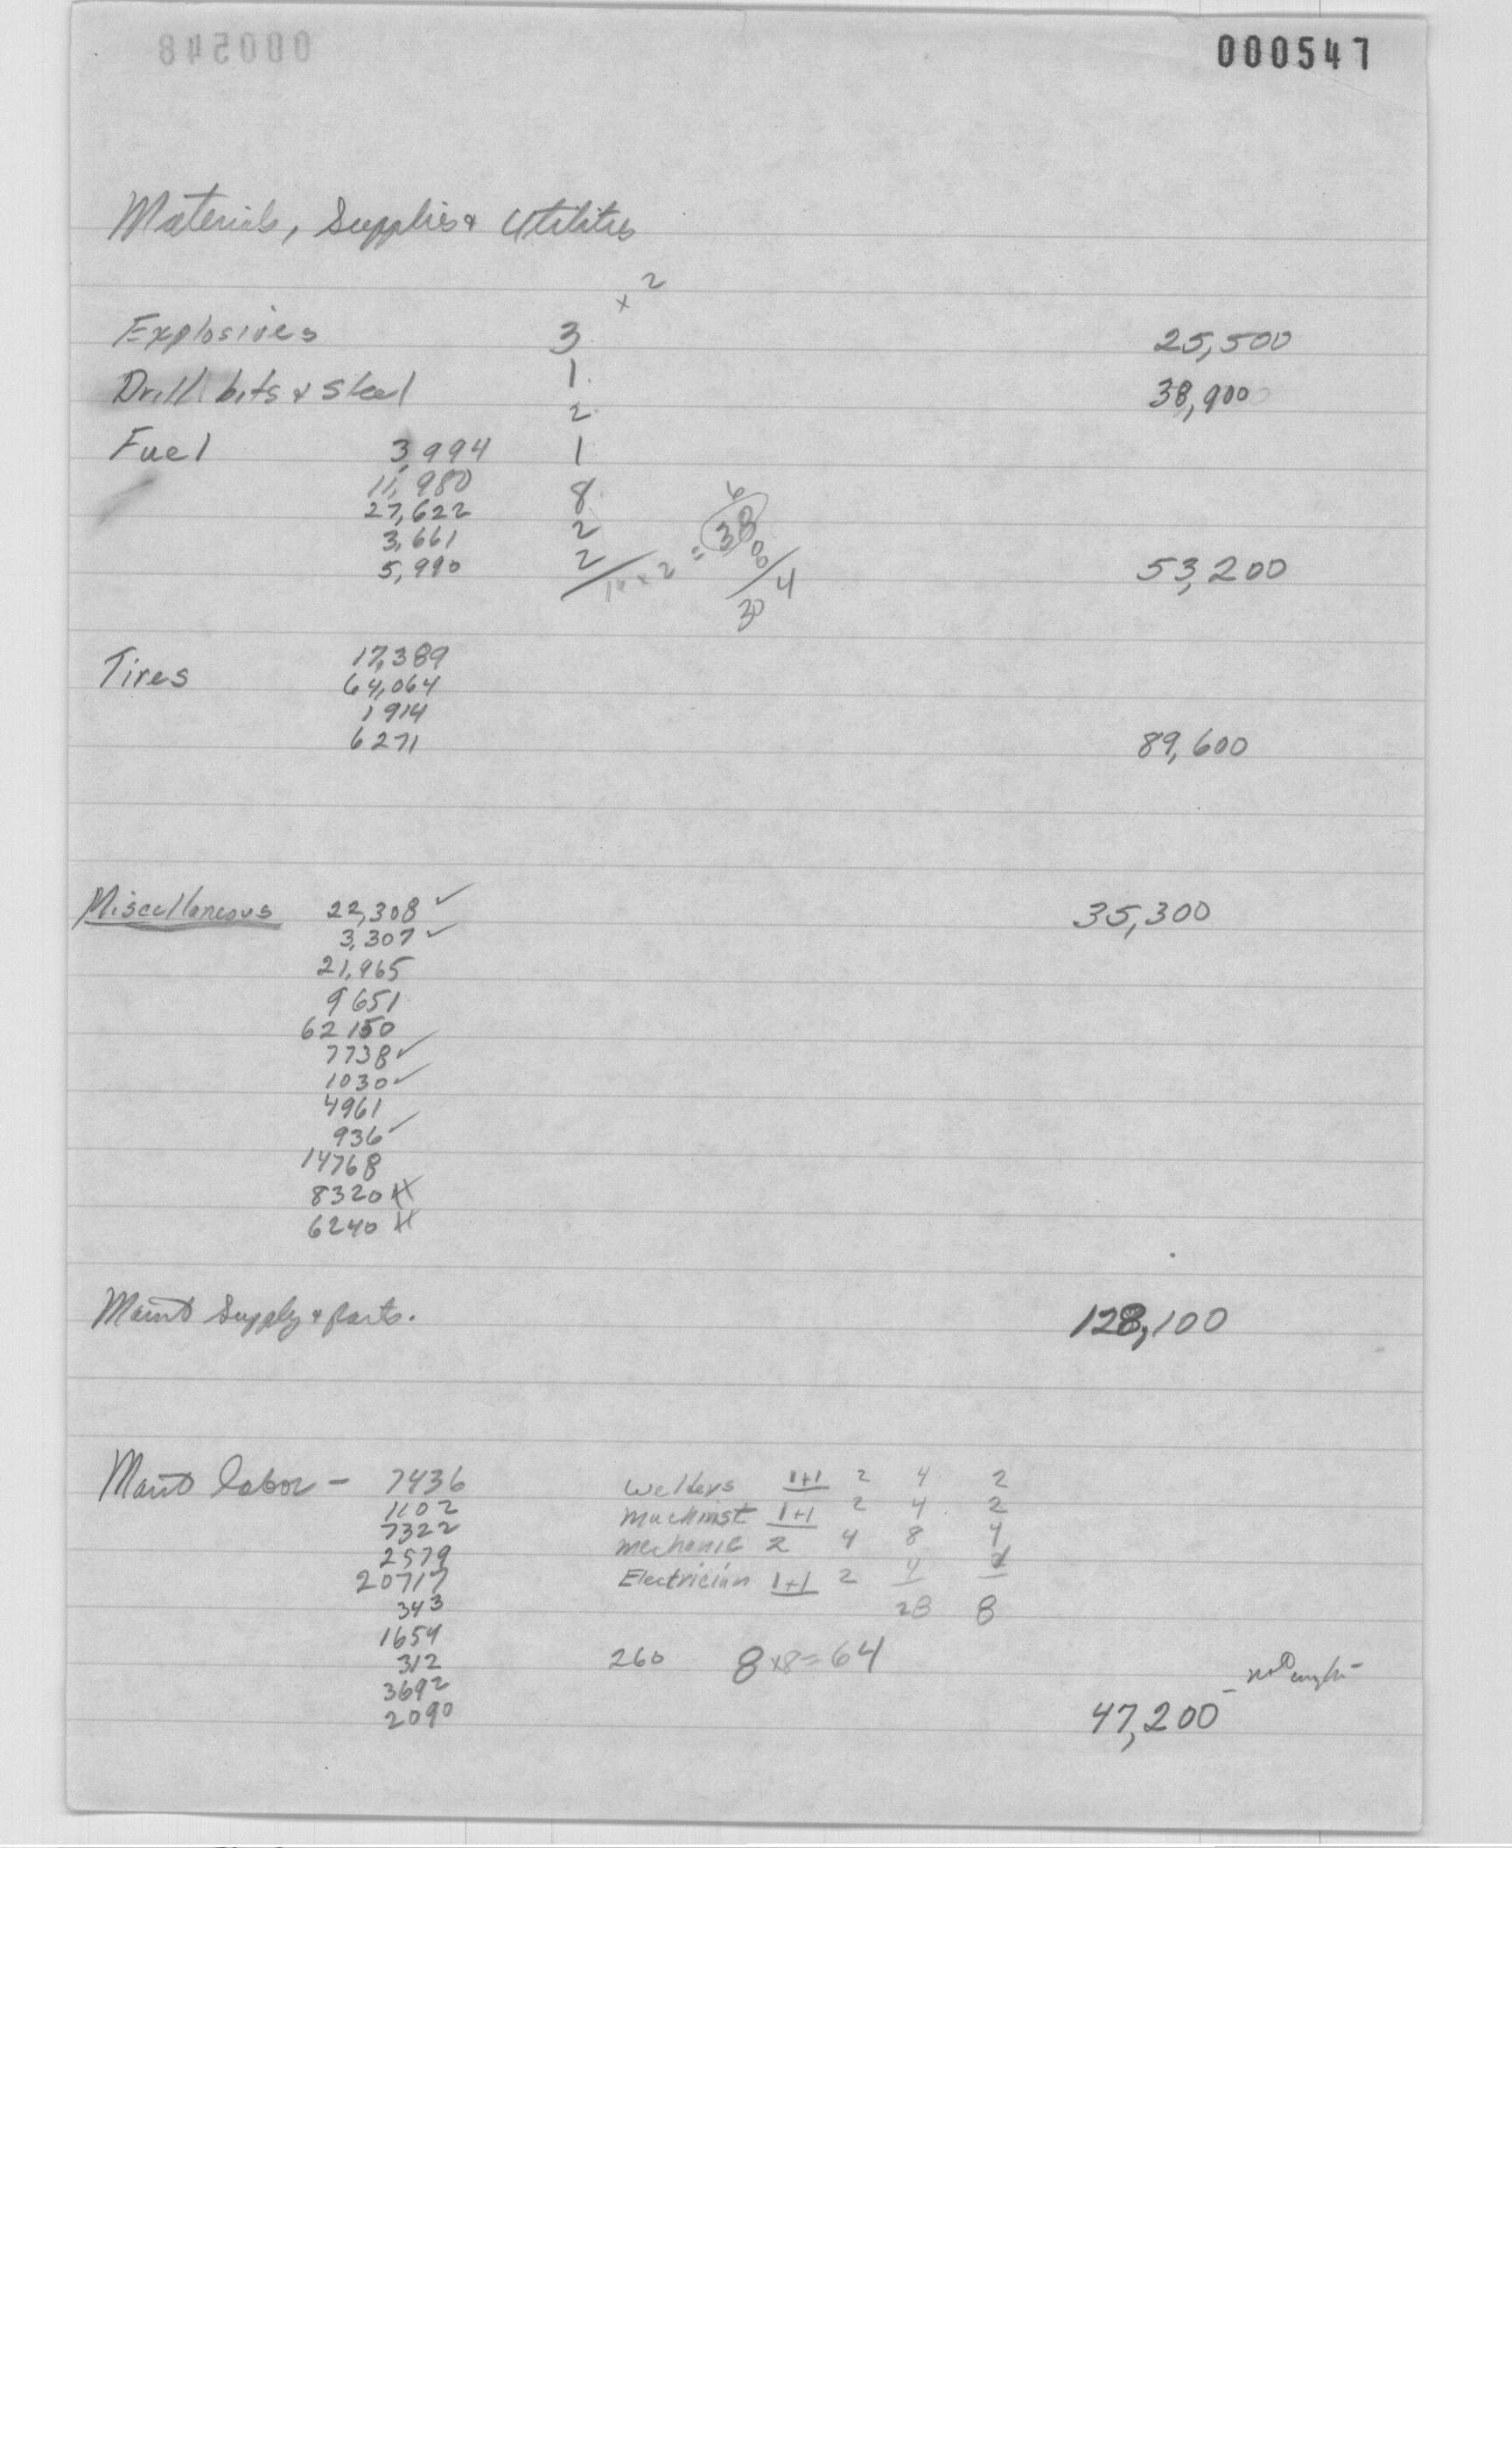 000547
Materials, Supplies & Utilities
x 2
Explosives 3 25,500
Drill bits & Steel 1 38,900
2
Fuel 3,994 1
11,980 8
27,622 2 38
3,661 2
5,990 x 2 = 53,200
4
30
Tires 17,389
64,064
1914
6271 89,600
Miscellaneous 22,308 ✓ 35,300
3,307 ✓
21,965
9651
62150
7738 ✓
1030 ✓
4961
936 ✓
14768
8320
6240
Maint Supply & parts. 128,100
Maint labor - 7436 Welders 1+1 2 4 2
1102 Machinist 1+1 2 4 2
7322 mechanic 2 4 8 4
2579 Electrician 1+1 2 4
20717
343 28 8
1654
312 260 8x8=64
3692
2090 47,200